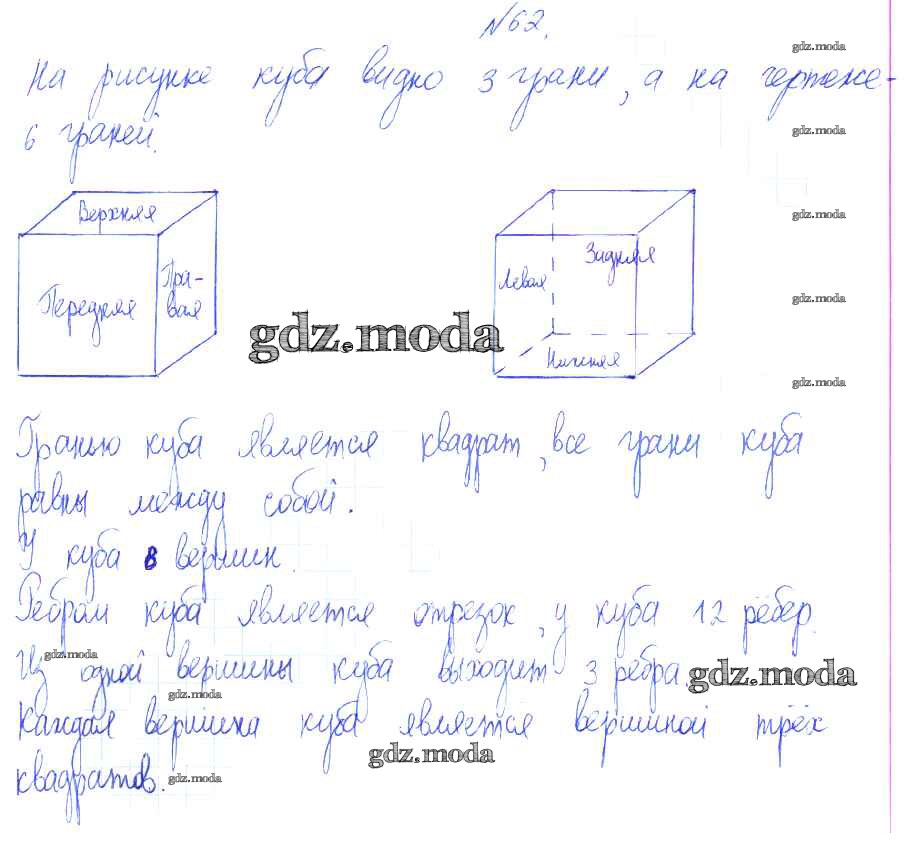 №62.
gdz.moda
На рисунке куба видно 3 грани, а на чертеже -
6 граней.
gdz.moda
Верхняя
gdz.moda
Задняя
Пра-
вая
Левая
Передняя
gdz.moda
gdz.moda
Нижняя
gdz.moda
Гранью куба является квадрат, все грани куба
равны между собой.
У куба 8 вершин.
Ребром куба является отрезок, у куба 12 рёбер.
gdz.moda
Из одной вершины куба выходит 3 ребра.
gdz.moda
gdz.moda
Каждая вершина куба является вершиной трёх
gdz.moda
квадратов.
gdz.moda